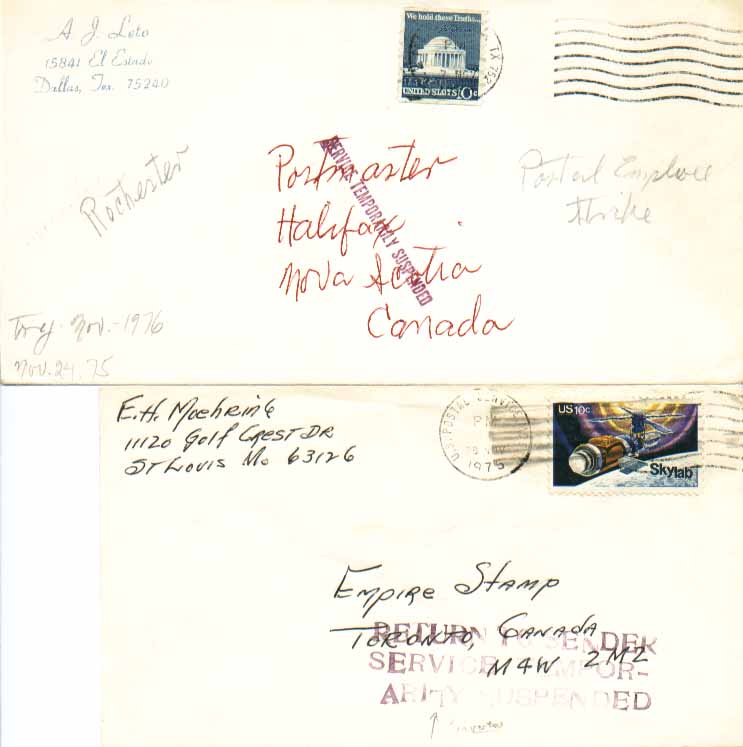 A. J. Leto
15841 El Estado
Dallas, Tex. 75240
We hold these Truths...
UNITED STATES 10c
TX 752
Rochester
SERVICE TEMPORARILY SUSPENDED
Postmaster
Halifax
Nova Scotia
Canada
Postal Employee
Strike
Nov.-1976
Nov. 24. 75
E.H. Moehring
11120 Golf Crest DR
St Louis Mo 63126
U.S. POSTAL SERVICE
PM
1975
US 10c
Skylab
Empire Stamp
Toronto, Canada
M4W 2M2
RETURN TO SENDER
SERVICE TEMPOR-
ARITY SUSPENDED